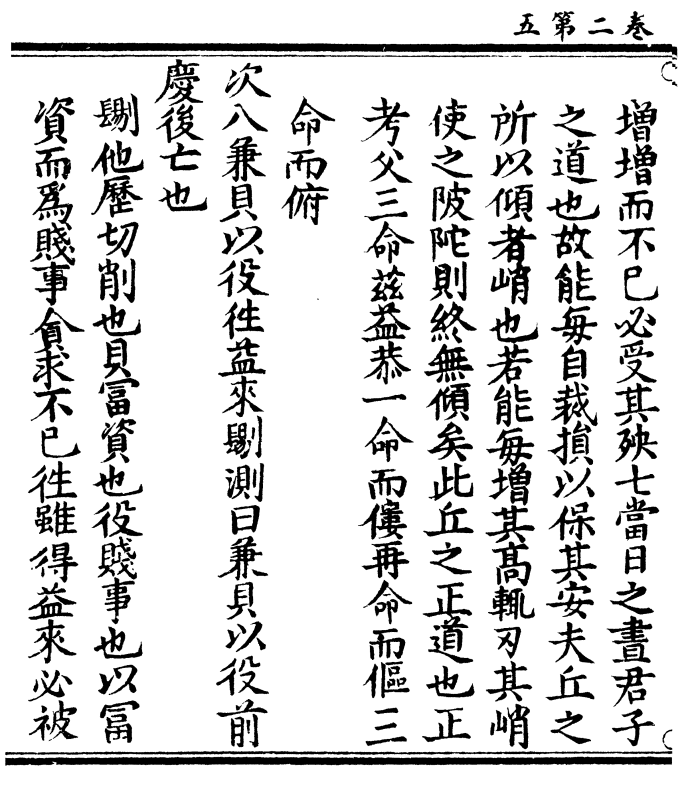 卷二第五
增增而不已必受其殃七當日之晝君子
之道也故能每自裁損以保其安夫丘之
所以傾者峭也若能每增其高輒刃其峭
使之陂陀則終無傾矣此丘之正道也正
考父三命茲益恭一命而僂再命而傴三
命而俯
次八兼貝以役徃益來䦉測曰兼貝以役前
慶後亡也
䦉他歷切削也貝冨資也役賤事也以冨
資而爲賤事貪求不已徃雖得益來必被